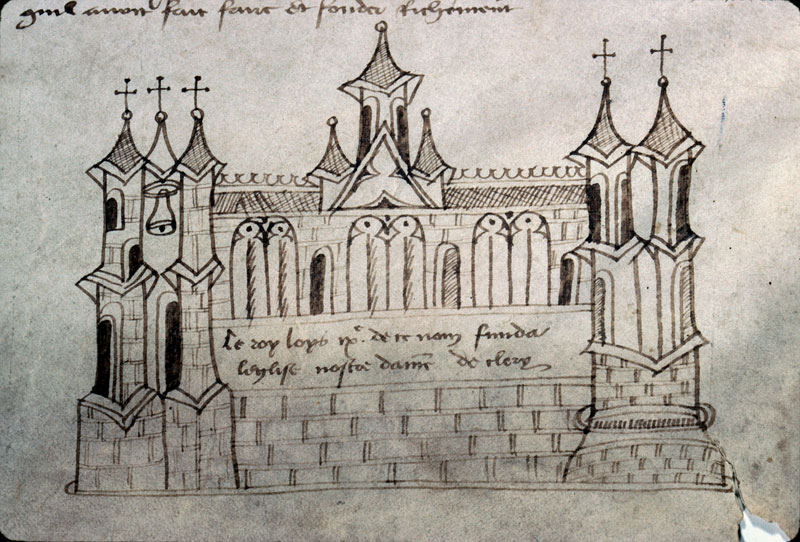 quil avoit fait faire et fonder richement
Le roy loys xje de ce nom funda
leglise nostre dame de clery